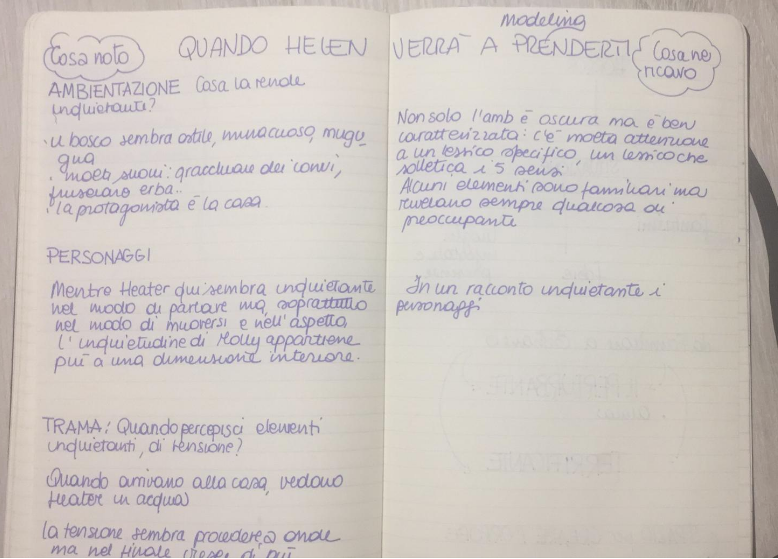 Modeling
Cosa noto
QUANDO HELEN VERRÀ A PRENDERTI
Cosa ne
ricavo
AMBIENTAZIONE Cosa la rende
inquietante?
· il bosco sembra ostile, minaccioso, mugu
gna
· molti suoni: gracchiare dei corvi,
frusciare erba..
· la protagonista è la casa.
PERSONAGGI
Mentre Heater qui sembra inquietante
nel modo di parlare ma, soprattutto
nel modo di muoversi e nell'aspetto,
l'inquietudine di Molly appartiene
più a una dimensione interiore.
TRAMA: Quando percepisci elementi
inquietanti, di tensione?
Quando arrivano alla casa, vedono
Heater in acqua)
la tensione sembra procedere a onde
ma nel finale cresce di più
Non solo l'amb è oscura ma è ben
caratterizzata: c'è molta attenzione
a un lessico specifico, un lessico che
solletica i 5 sensi
Alcuni elementi sono familiari ma
rivelano sempre qualcosa di
preoccupante
In un racconto inquietante i
personaggi